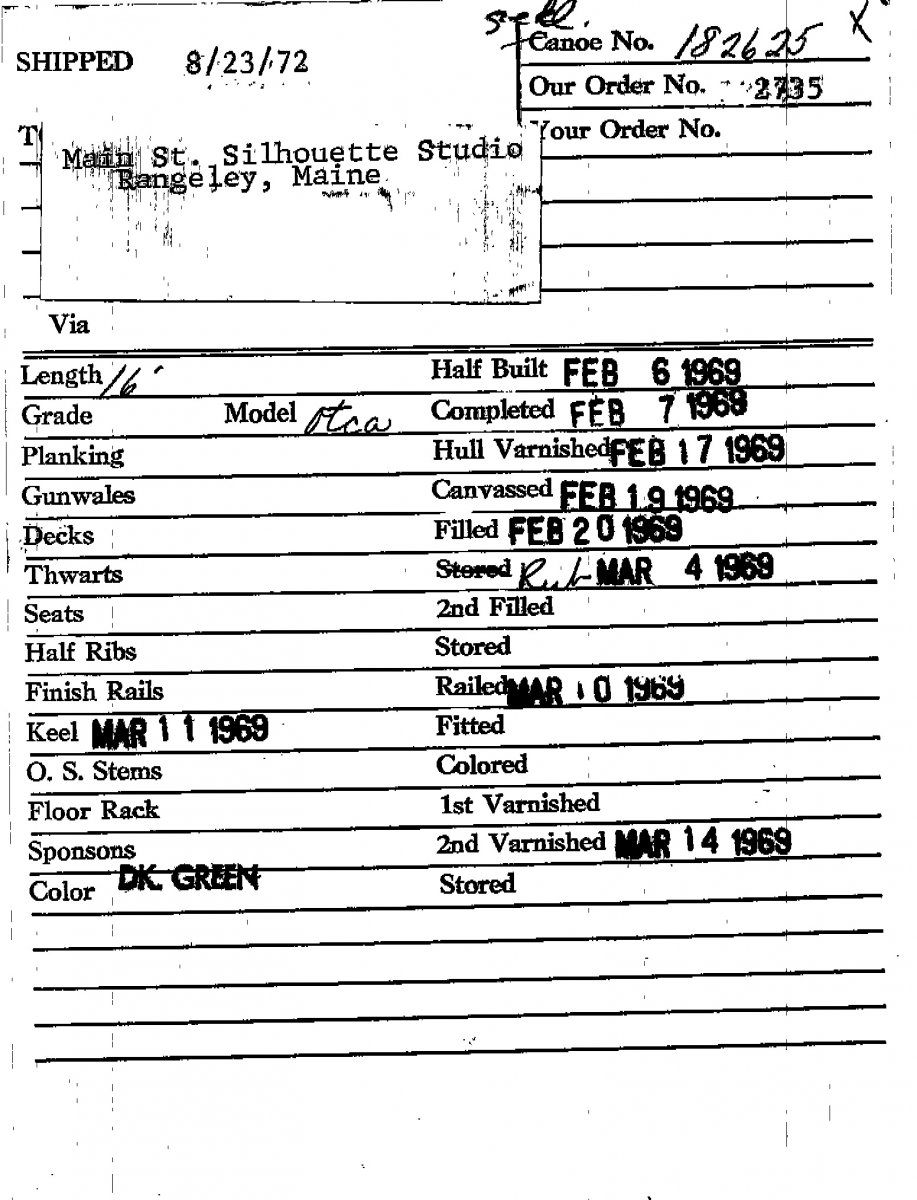 SHIPPED 8/23/72
Canoe No. 182625 X
Our Order No. 2735
Your Order No.
Main St. Silhouette Studio
Rangeley, Maine
Via
Length 16'
Half Built FEB 6 1969
Grade Model Otca
Completed FEB 7 1969
Planking
Hull Varnished FEB 17 1969
Gunwales
Canvassed FEB 19 1969
Decks
Filled FEB 20 1969
Thwarts
Stored Rub MAR 4 1969
Seats
2nd Filled
Half Ribs
Stored
Finish Rails
Railed MAR 10 1969
Keel MAR 11 1969
Fitted
O. S. Stems
Colored
Floor Rack
1st Varnished
Sponsons
2nd Varnished MAR 14 1969
Color DK. GREEN
Stored